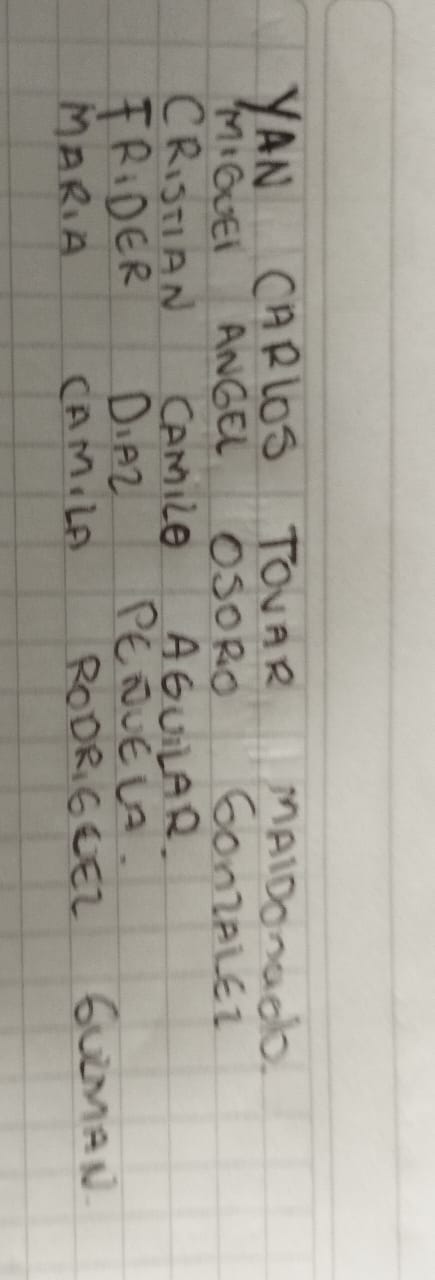 YAN CARLOS TOVAR MALDONADO.
MIGUEL ANGEL OSORO GONZALEZ
CRISTIAN CAMILO AGUILAR.
FRIDER DIAZ PEÑUELA.
MARIA CAMILA RODRIGUEZ GUZMAN.